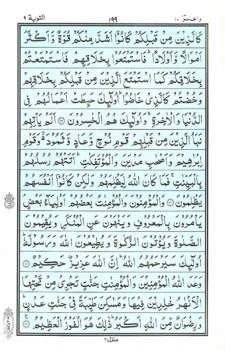 التوبة ٩
١٩٩
واعلموٓا ١٠
كَالَّذِيْنَ مِنْ قَبْلِكُمْ كَانُوْۤا اَشَدَّ مِنْكُمْ قُوَّةً وَّاَكْثَرَ
اَمْوَالًا وَّاَوْلَادًا ؕ فَاسْتَمْتَعُوْا بِخَلَاقِهِمْ فَاسْتَمْتَعْتُمْ
بِخَلَاقِكُمْ كَمَا اسْتَمْتَعَ الَّذِيْنَ مِنْ قَبْلِكُمْ بِخَلَاقِهِمْ
وَخُضْتُمْ كَالَّذِيْ خَاضُوْا ؕ اُولٰٓئِكَ حَبِطَتْ اَعْمَالُهُمْ فِي
الدُّنْيَا وَالْاٰخِرَةِ ۚ وَاُولٰٓئِكَ هُمُ الْخٰسِرُوْنَ ۝ اَلَمْ يَاْتِهِمْ
نَبَاُ الَّذِيْنَ مِنْ قَبْلِهِمْ قَوْمِ نُوْحٍ وَّعَادٍ وَّثَمُوْدَ ۙ وَقَوْمِ
اِبْرٰهِيْمَ وَاَصْحٰبِ مَدْيَنَ وَالْمُؤْتَفِكٰتِ ؕ اَتَتْهُمْ رُسُلُهُمْ
بِالْبَيِّنٰتِ ۚ فَمَا كَانَ اللّٰهُ لِيَظْلِمَهُمْ وَلٰكِنْ كَانُوْۤا اَنْفُسَهُمْ
يَظْلِمُوْنَ ۝ وَالْمُؤْمِنُوْنَ وَالْمُؤْمِنٰتُ بَعْضُهُمْ اَوْلِيَآءُ بَعْضٍ ۘ
يَاْمُرُوْنَ بِالْمَعْرُوْفِ وَيَنْهَوْنَ عَنِ الْمُنْكَرِ وَيُقِيْمُوْنَ
الصَّلٰوةَ وَيُؤْتُوْنَ الزَّكٰوةَ وَيُطِيْعُوْنَ اللّٰهَ وَرَسُوْلَهٗ ؕ
اُولٰٓئِكَ سَيَرْحَمُهُمُ اللّٰهُ ؕ اِنَّ اللّٰهَ عَزِيْزٌ حَكِيْمٌ ۝
وَعَدَ اللّٰهُ الْمُؤْمِنِيْنَ وَالْمُؤْمِنٰتِ جَنّٰتٍ تَجْرِيْ مِنْ تَحْتِهَا
الْاَنْهٰرُ خٰلِدِيْنَ فِيْهَا وَمَسٰكِنَ طَيِّبَةً فِيْ جَنّٰتِ عَدْنٍ ؕ
وَرِضْوَانٌ مِّنَ اللّٰهِ اَكْبَرُ ؕ ذٰلِكَ هُوَ الْفَوْزُ الْعَظِيْمُ ۝
منزل ٢